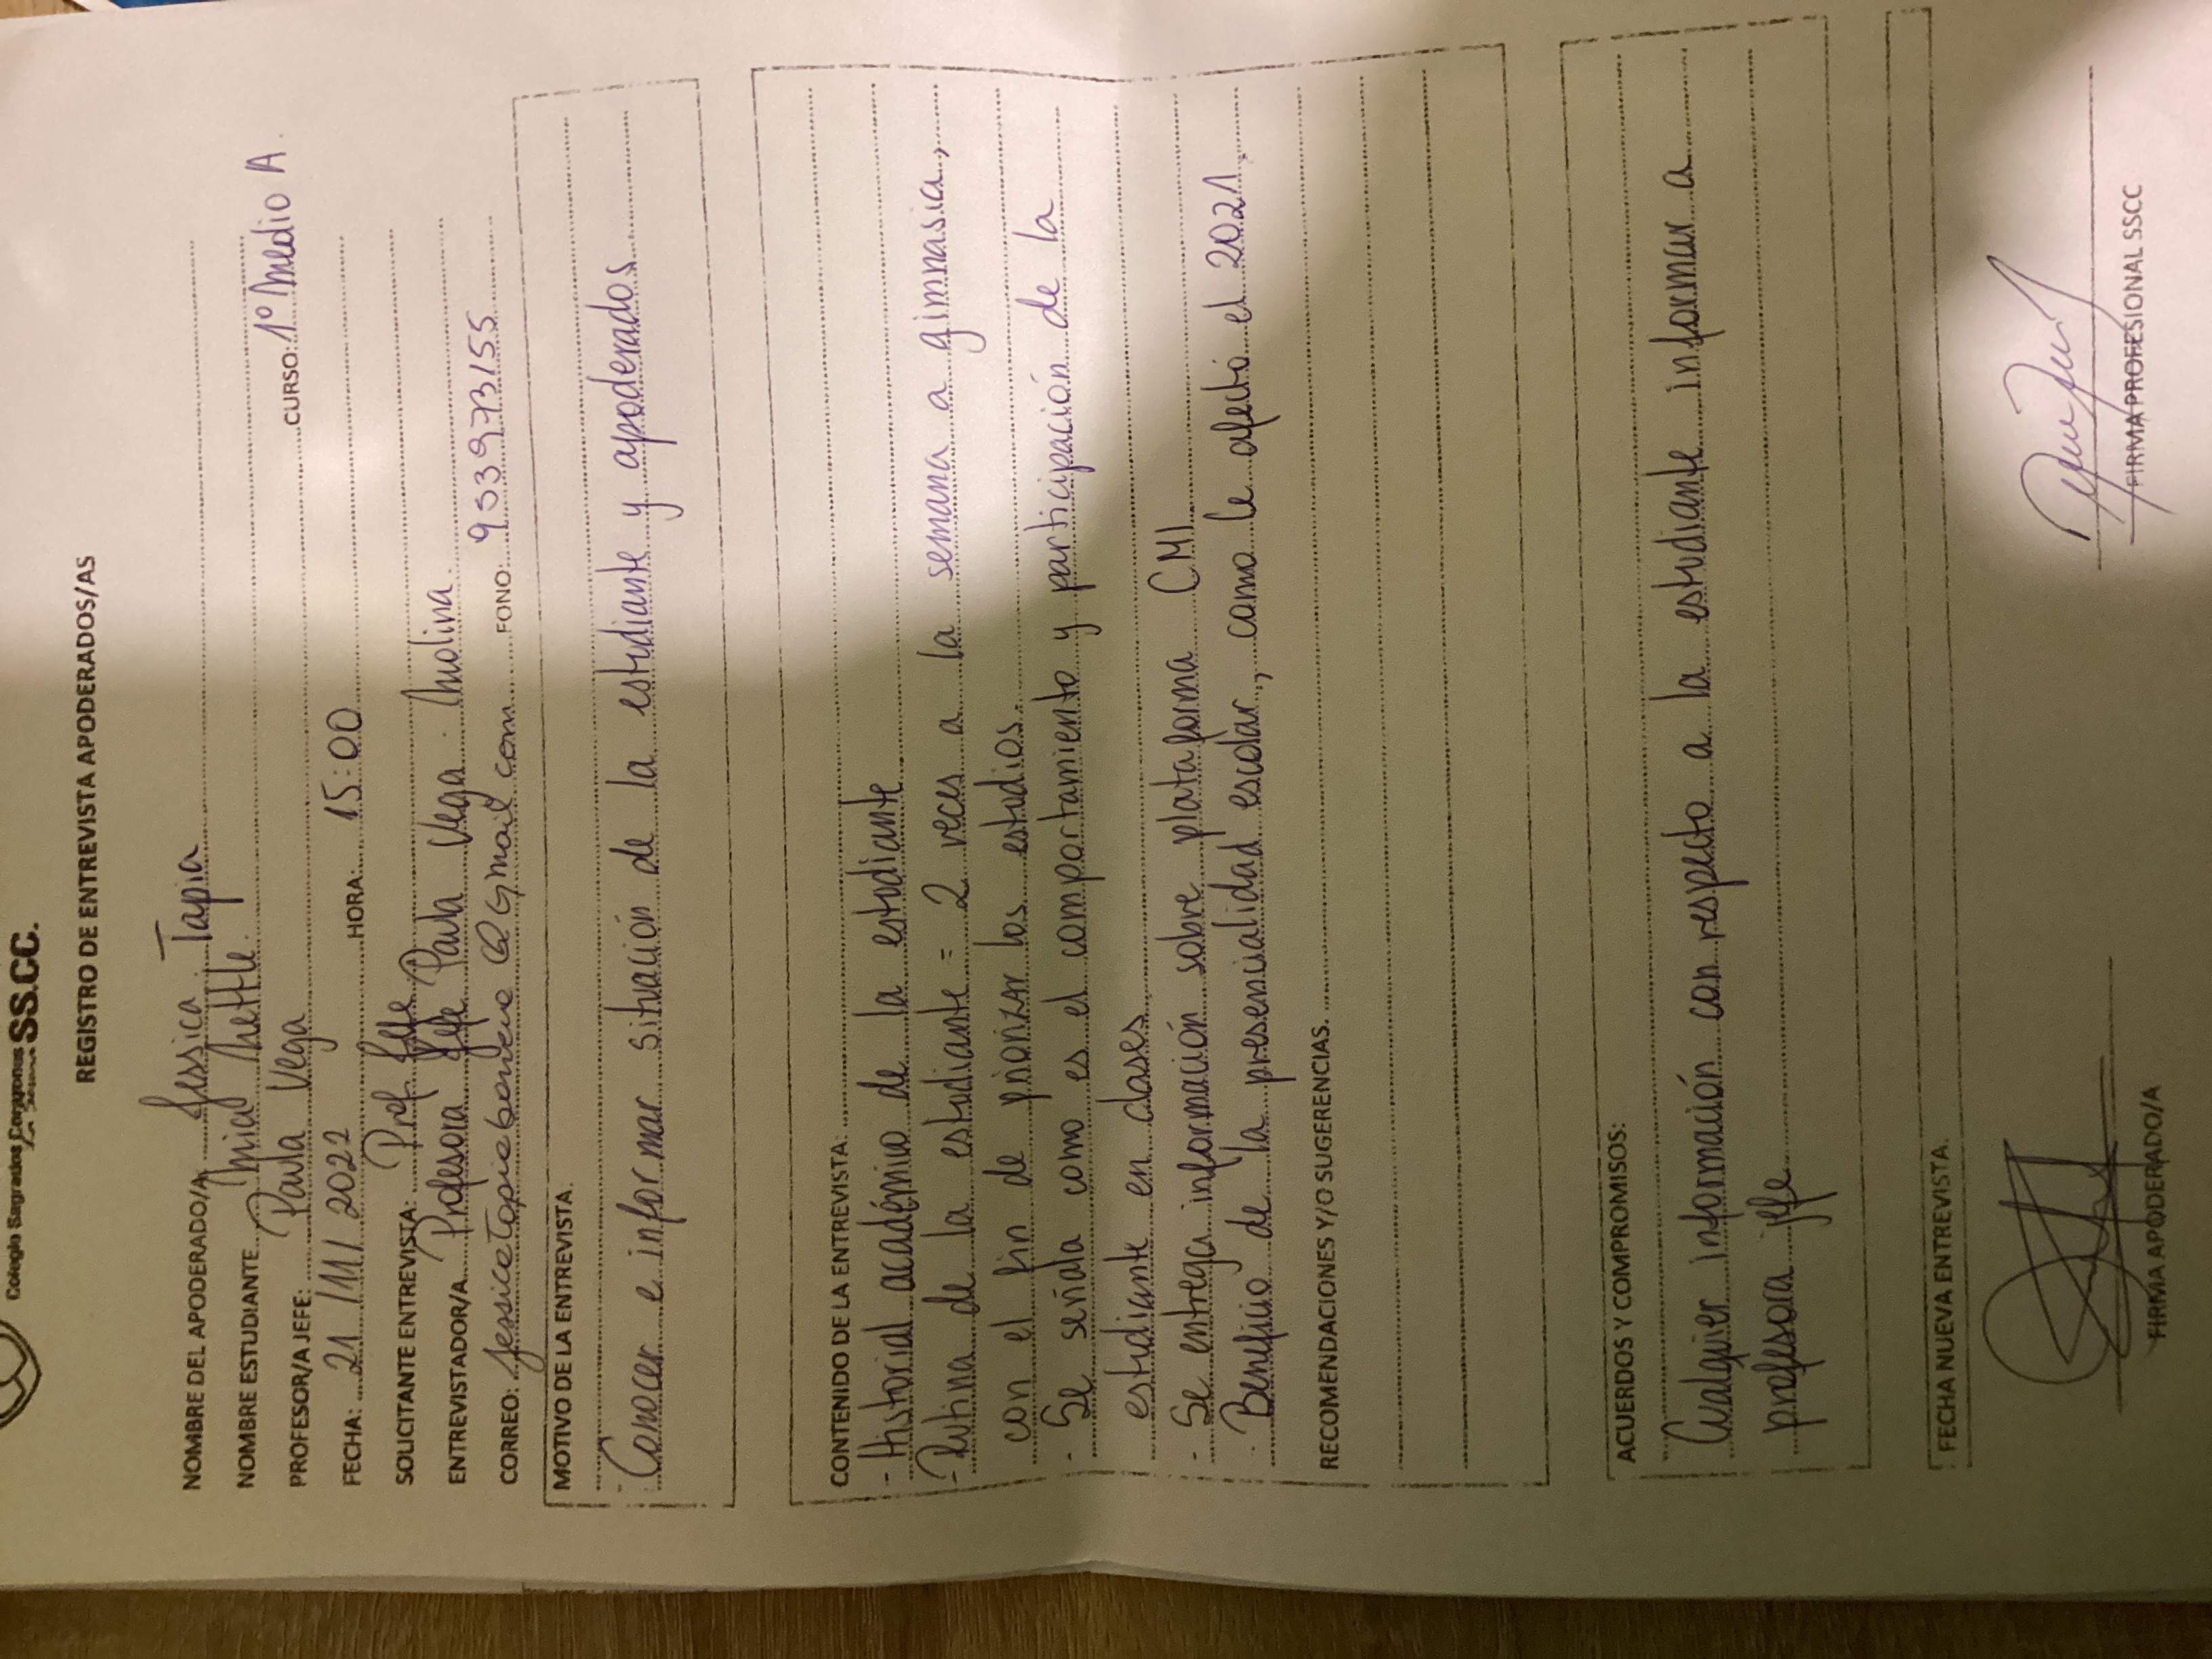 Colegio Sagrados Corazones SS.CC.
REGISTRO DE ENTREVISTA APODERADOS/AS
NOMBRE DEL APODERADO/A Jessica Tapia
NOMBRE ESTUDIANTE
PROFESOR/A JEFE: Paula Vega CURSO: 1º Medio A
FECHA: 21 / 11 / 2022 HORA: 15:00
SOLICITANTE ENTREVISTA: Prof Jefe
ENTREVISTADOR/A. Profesora Jefe Paula Vega Molina.
CORREO: FONO: 953973155
MOTIVO DE LA ENTREVISTA.
Conocer e informar situación de la estudiante y apoderados
CONTENIDO DE LA ENTREVISTA:
- Historial académico de la estudiante
- Rutina de la estudiante = 2 veces a la semana a gimnasia,
con el fin de priorizar los estudios.
- Se señala como es el comportamiento y participación de la
estudiante en clases
- Se entrega información sobre plataforma CMI
- Beneficio de la presencialidad escolar, como le afectó el 2021,
RECOMENDACIONES Y/O SUGERENCIAS.
ACUERDOS Y COMPROMISOS:
Cualquier información con respecto a la estudiante informar a
profesora jefe
FECHA NUEVA ENTREVISTA.
FIRMA APODERADO/A FIRMA PROFESIONAL SSCC